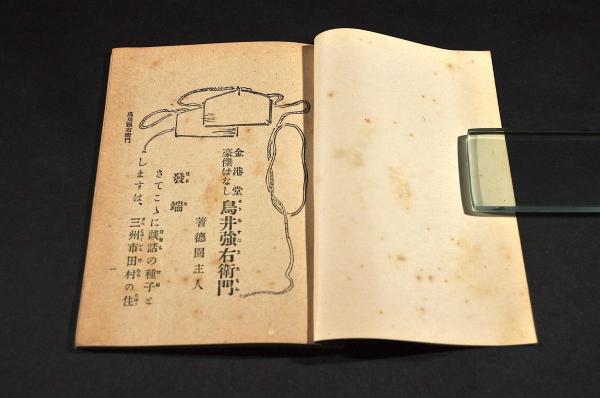 金港堂
豪傑はなし
鳥井強右衛門
著德園主人
發端
さてこゝに談話の種子と
しますは、三州市田村の住
鳥居強右衛門
一